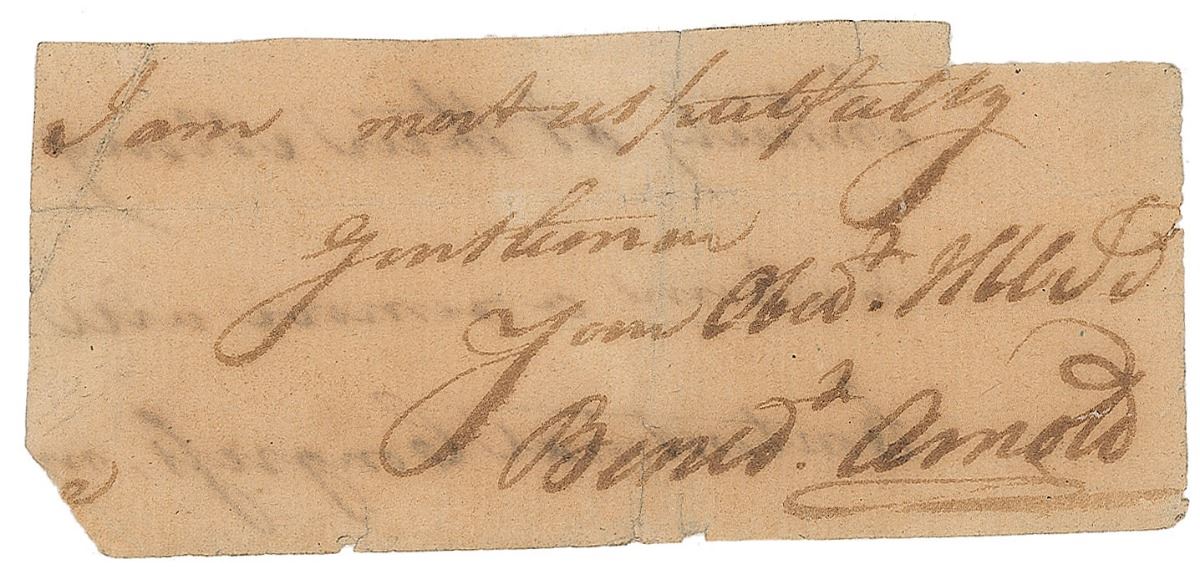 I am most respectfully
Gentlemen
Your Obedt. Hble Sd
Bened.t Arnold